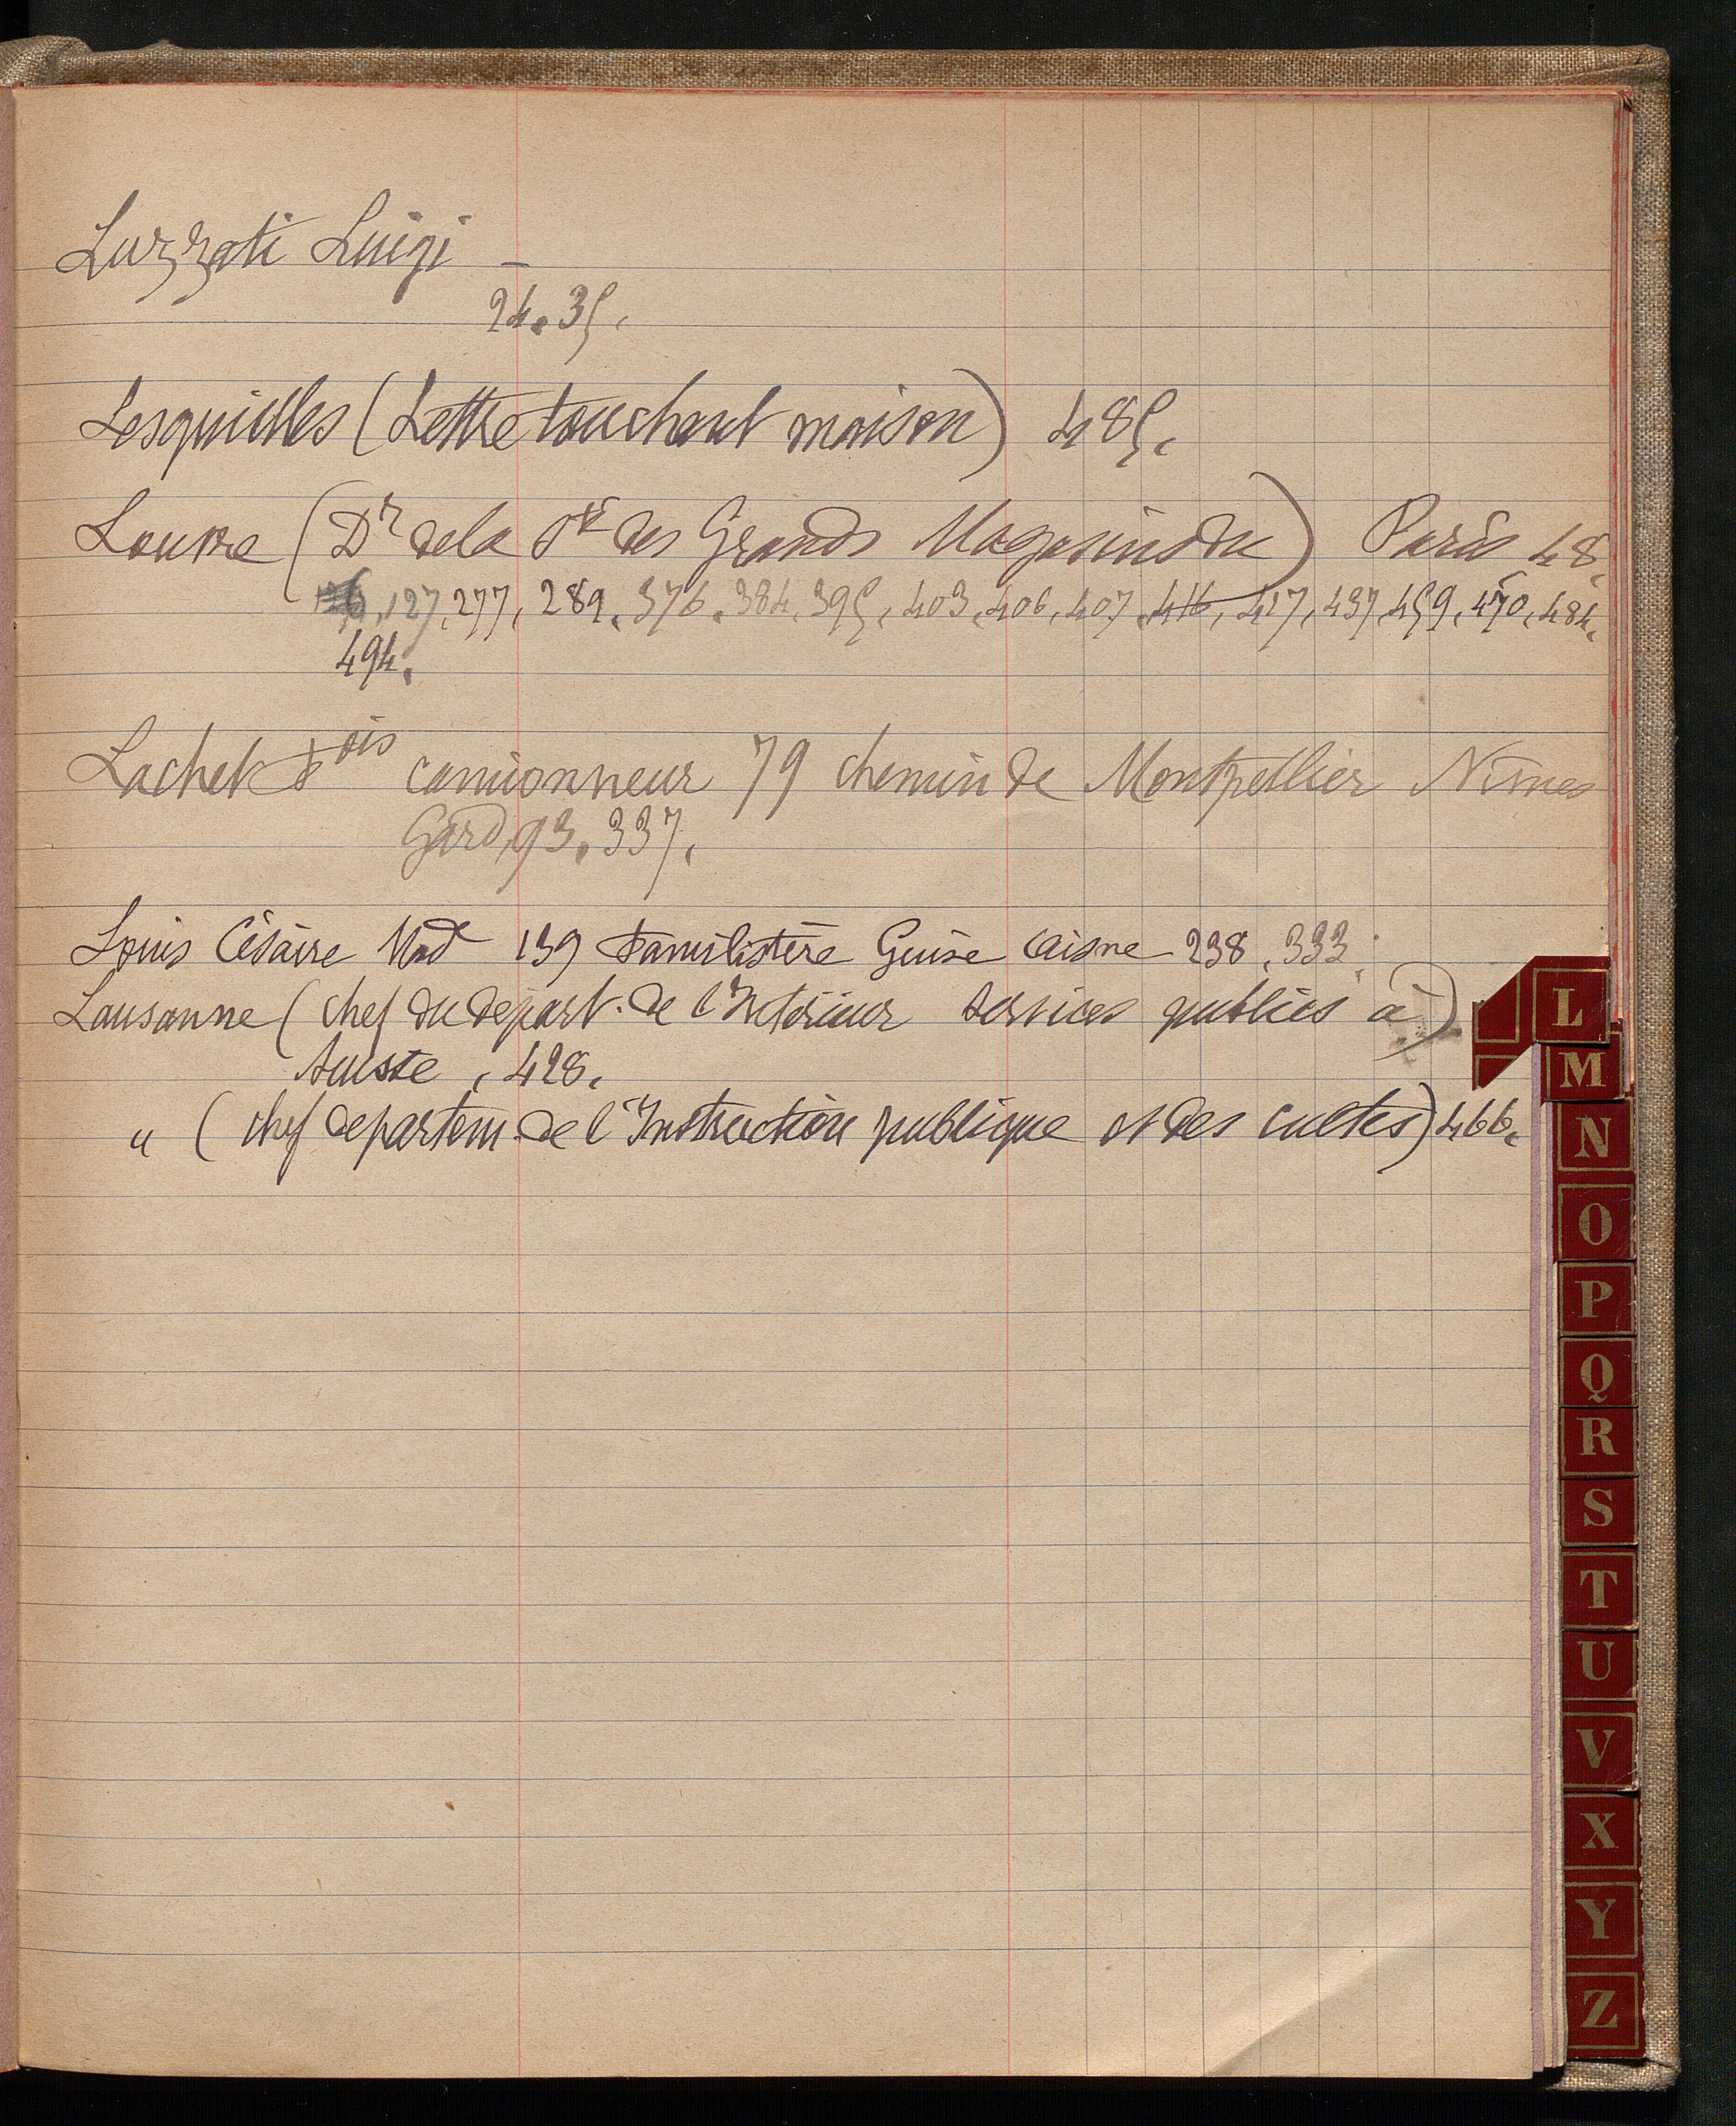 Luzzati Luigi –
24. 35.
Lesquielles (Lettre touchant maison) 485.
Louvre (Dr de la Sté des Grands Magasins du) Paris 48,
127, 277, 289, 376, 384, 395, 403, 406, 407, 416, 417, 437, 459, 470, 484,
494.
Lachet Fois camionneur 79 chemin de Montpellier Nimes
Gard, 93, 337,
Louis Césaire Mad 139 Familistère Guise Aisne 238, 333,
Lausanne (chef du départ. de l'Intérieur services publics à)
Suisse, 428.
" (chef departem. de l'Instruction publique et des cultes) 466.
L
M
N
O
P
Q
R
S
T
U
V
X
Y
Z